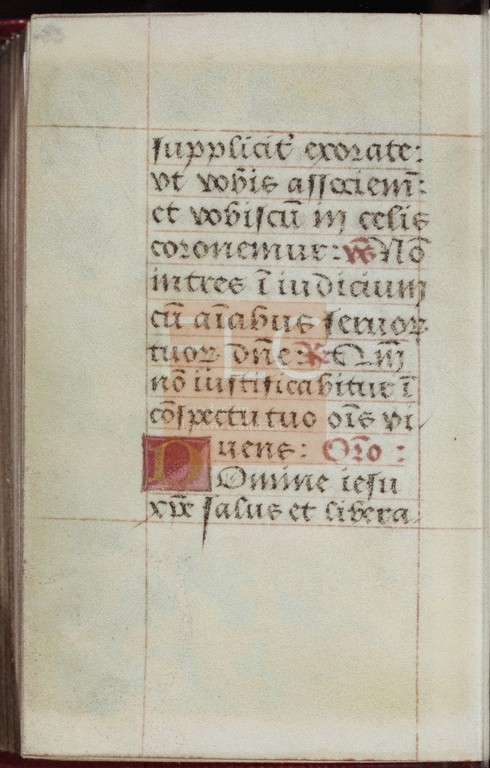 supplicit᷑ exorate:
vt vobis associem̄:
et vobiscū in celis
coronemur: ℣ Nō
intres ī iudicium
cū aīabus seruoꝝ
tuoꝝ dn̄e: ℟ Qm̄
nō iustificabitur ī
cōspectu tuo oīs vi
uens: Orō:
Domine iesu
xp̄e salus et libera